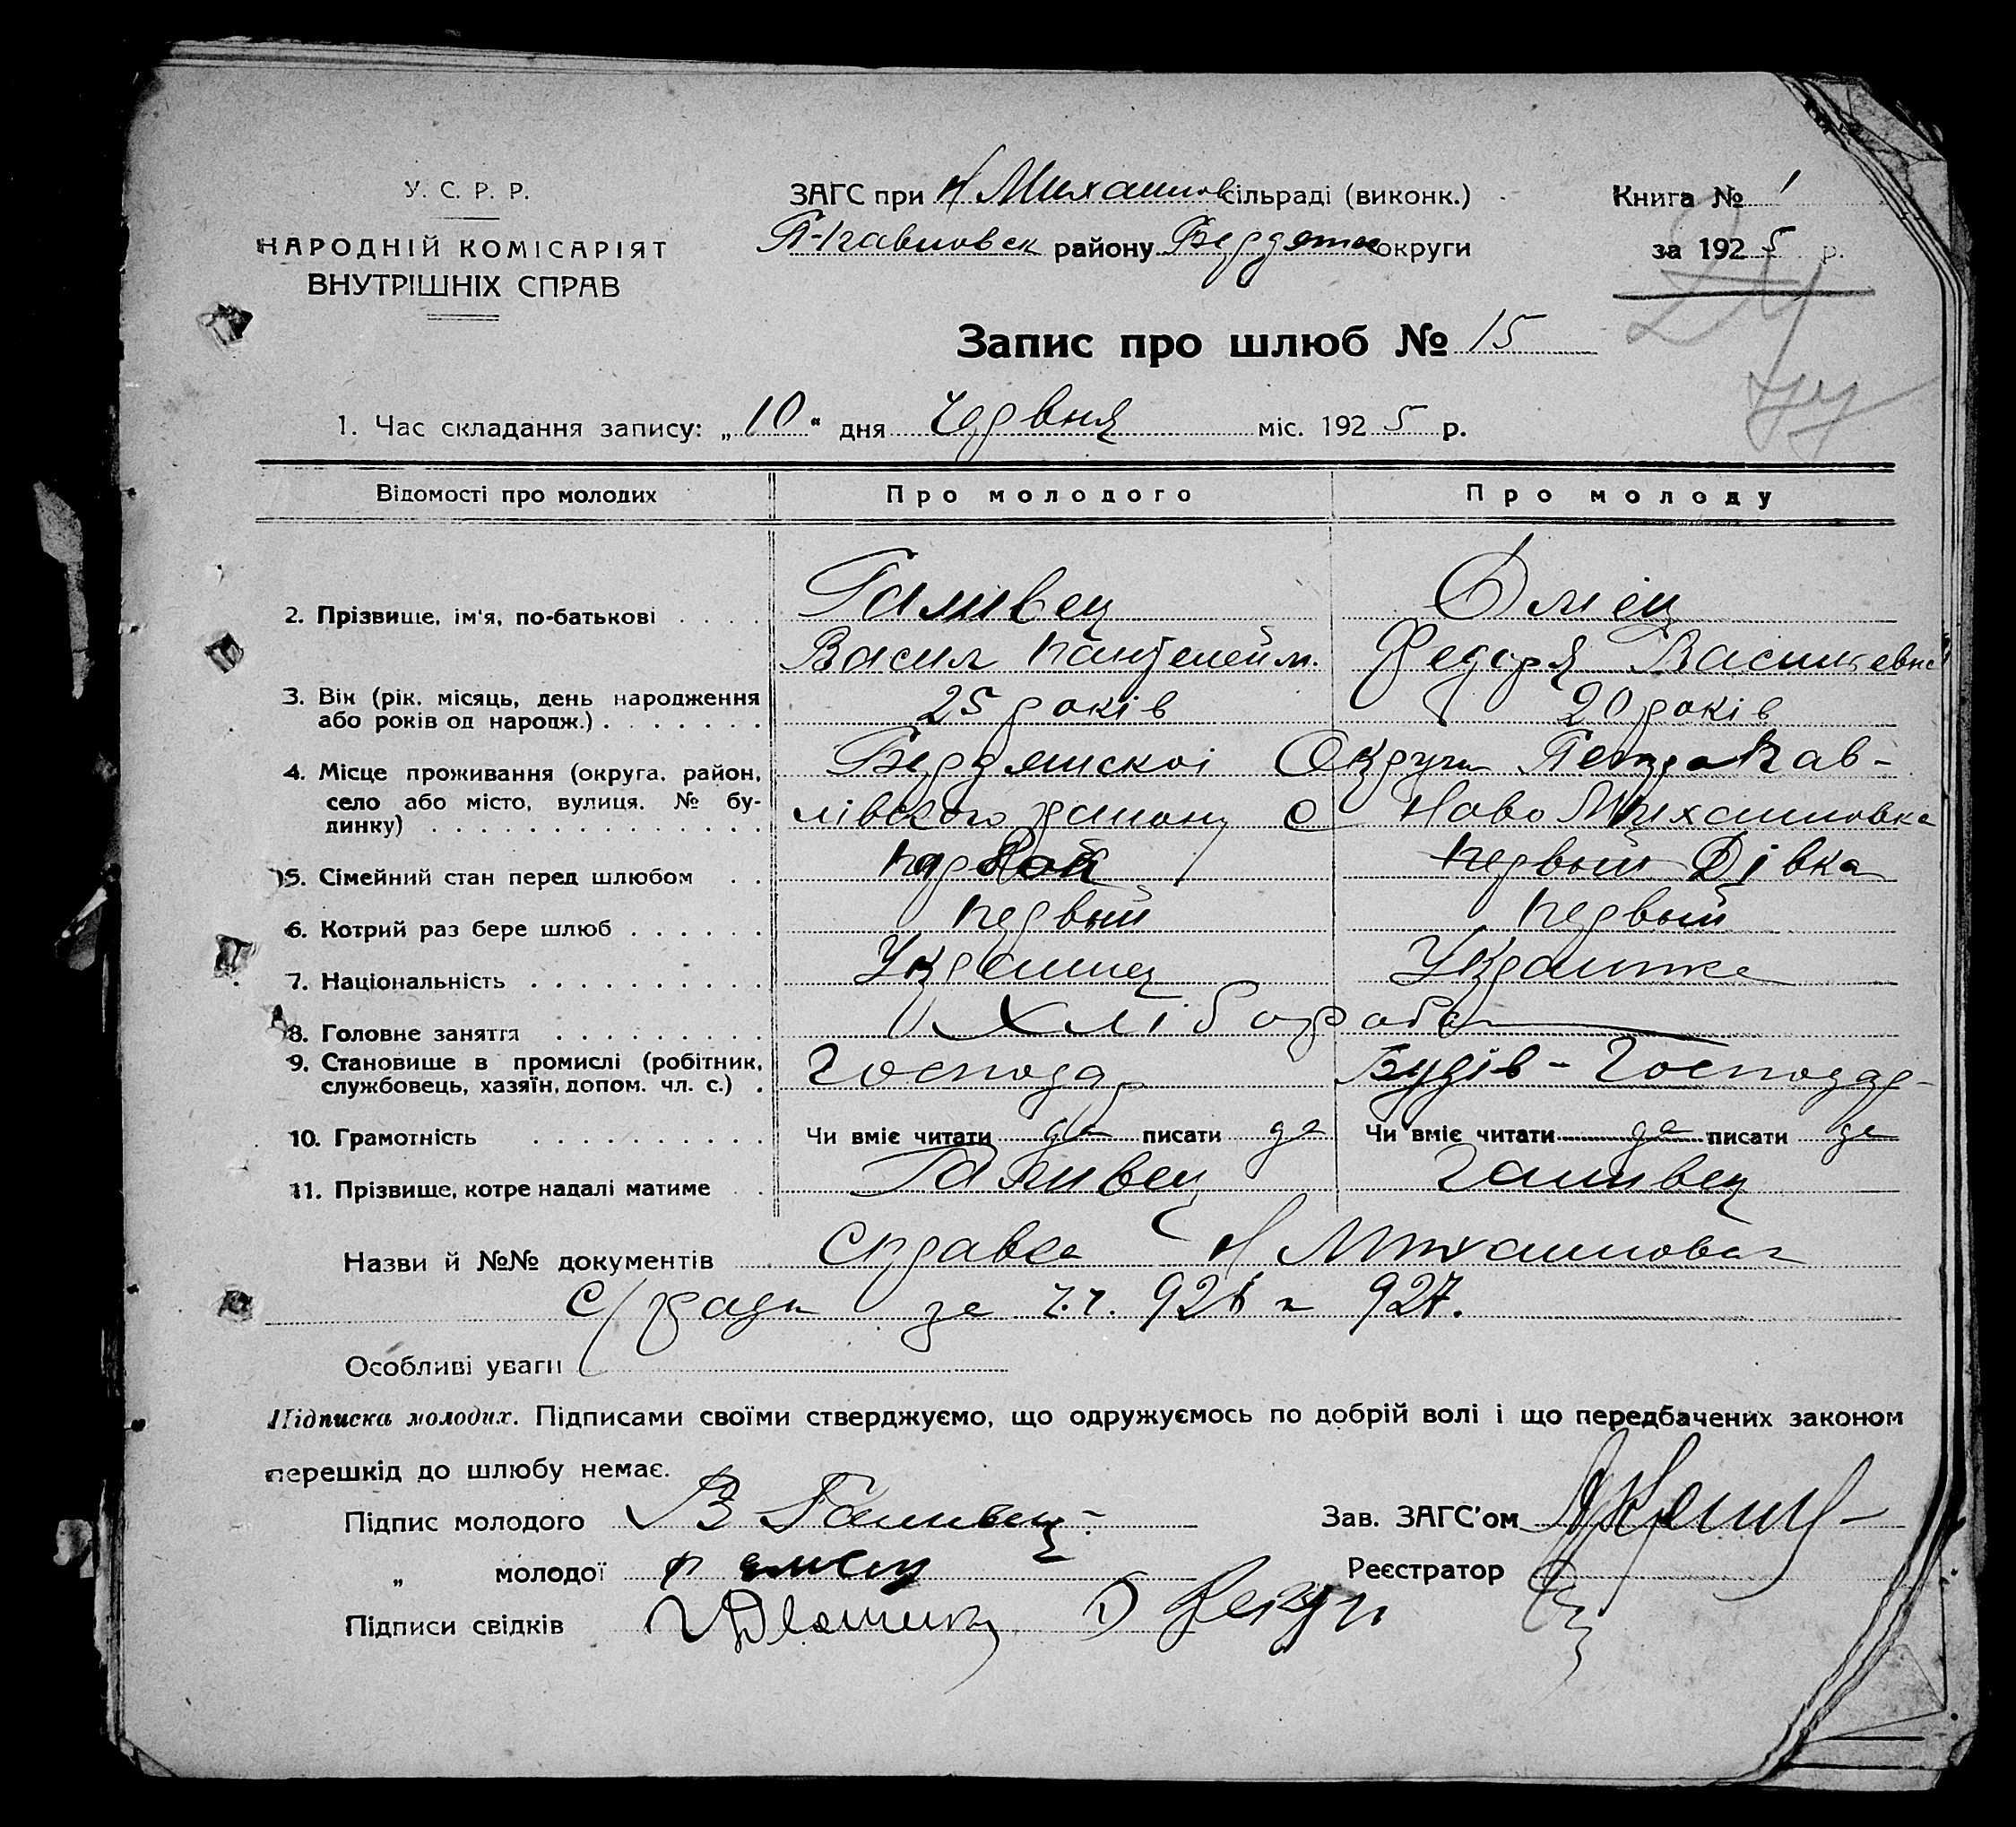 У. С. Р. Р.
НАРОДНІЙ КОМІСАРІЯТ
ВНУТРІШНІХ СПРАВ
ЗАГС при Н Михайлов сільраді (виконк.)
П-Павловск району Бердянск округи
Книга № 1
за 1925 р.
Запис про шлюб № 15
1. Час складання запису: „10“ дня Червня міс. 1925 р.
Відомості про молодих Про молодого Про молоду
2. Прізвище, ім'я, по-батькові Галивец
Васил Пантелейм. Федора Василевна
3. Вік (рік, місяць, день народження
або років од народж.) 25 років 20 років
4. Місце проживання (округа, район,
село або місто, вулиця, № бу-
динку)
Бердянскоі Округи Петропав-
лівского району с Ново Михайловка
5. Сімейний стан перед шлюбом первый Дівка
6. Котрий раз бере шлюб первый первый
7. Національність Украинец Украинка
8. Головне заняття Хлібороба
9. Становище в промислі (робітник,
службовець, хазяїн, допом. чл. с.) Господар Господар
10. Грамотність Чи вміє читати да писати да Чи вміє читати да писати да
11. Прізвище, котре надалі матиме Галивец Галивец
Назви й №№ документів Справка Н Михайловск
с/ради за ч.ч. 926 и 927.
Особливі уваги
Підписка молодих. Підписами своїми стверджуємо, що одружуємось по добрій волі і що передбачених законом
перешкід до шлюбу немає.
Підпис молодого В Галивец
Зав. ЗАГС'ом
„ молодої
Реєстратор
Підписи свідків